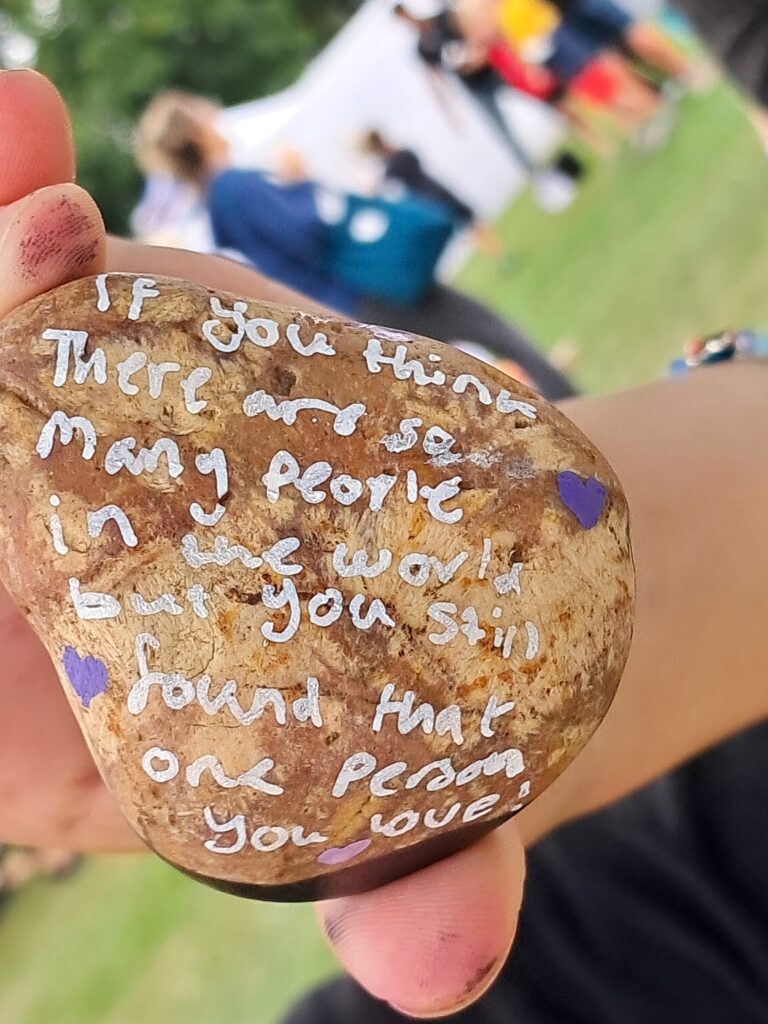 If you think
There are so
many people
in the world
but you still
found that
one person
you love!